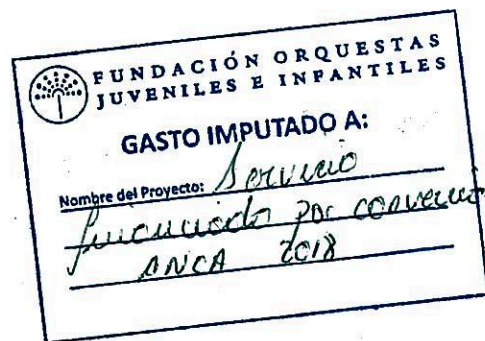 FUNDACIÓN ORQUESTAS
JUVENILES E INFANTILES
GASTO IMPUTADO A:
Nombre del Proyecto: Servicio
financiado por convenio
CNCA 2018